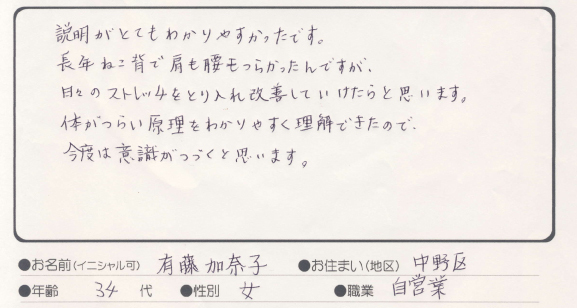 説明がとてもわかりやすかったです。
長年ねこ背で肩も腰もつらかったんですが、
日々のストレッチをとり入れ改善していけたらと思います。
体がつらい原理をわかりやすく理解できたので、
今度は意識がつづくと思います。
●お名前(イニシャル可) 有藤 加奈子 ●お住まい(地区) 中野区
●年齢 34 代 ●性別 女 ●職業 自営業